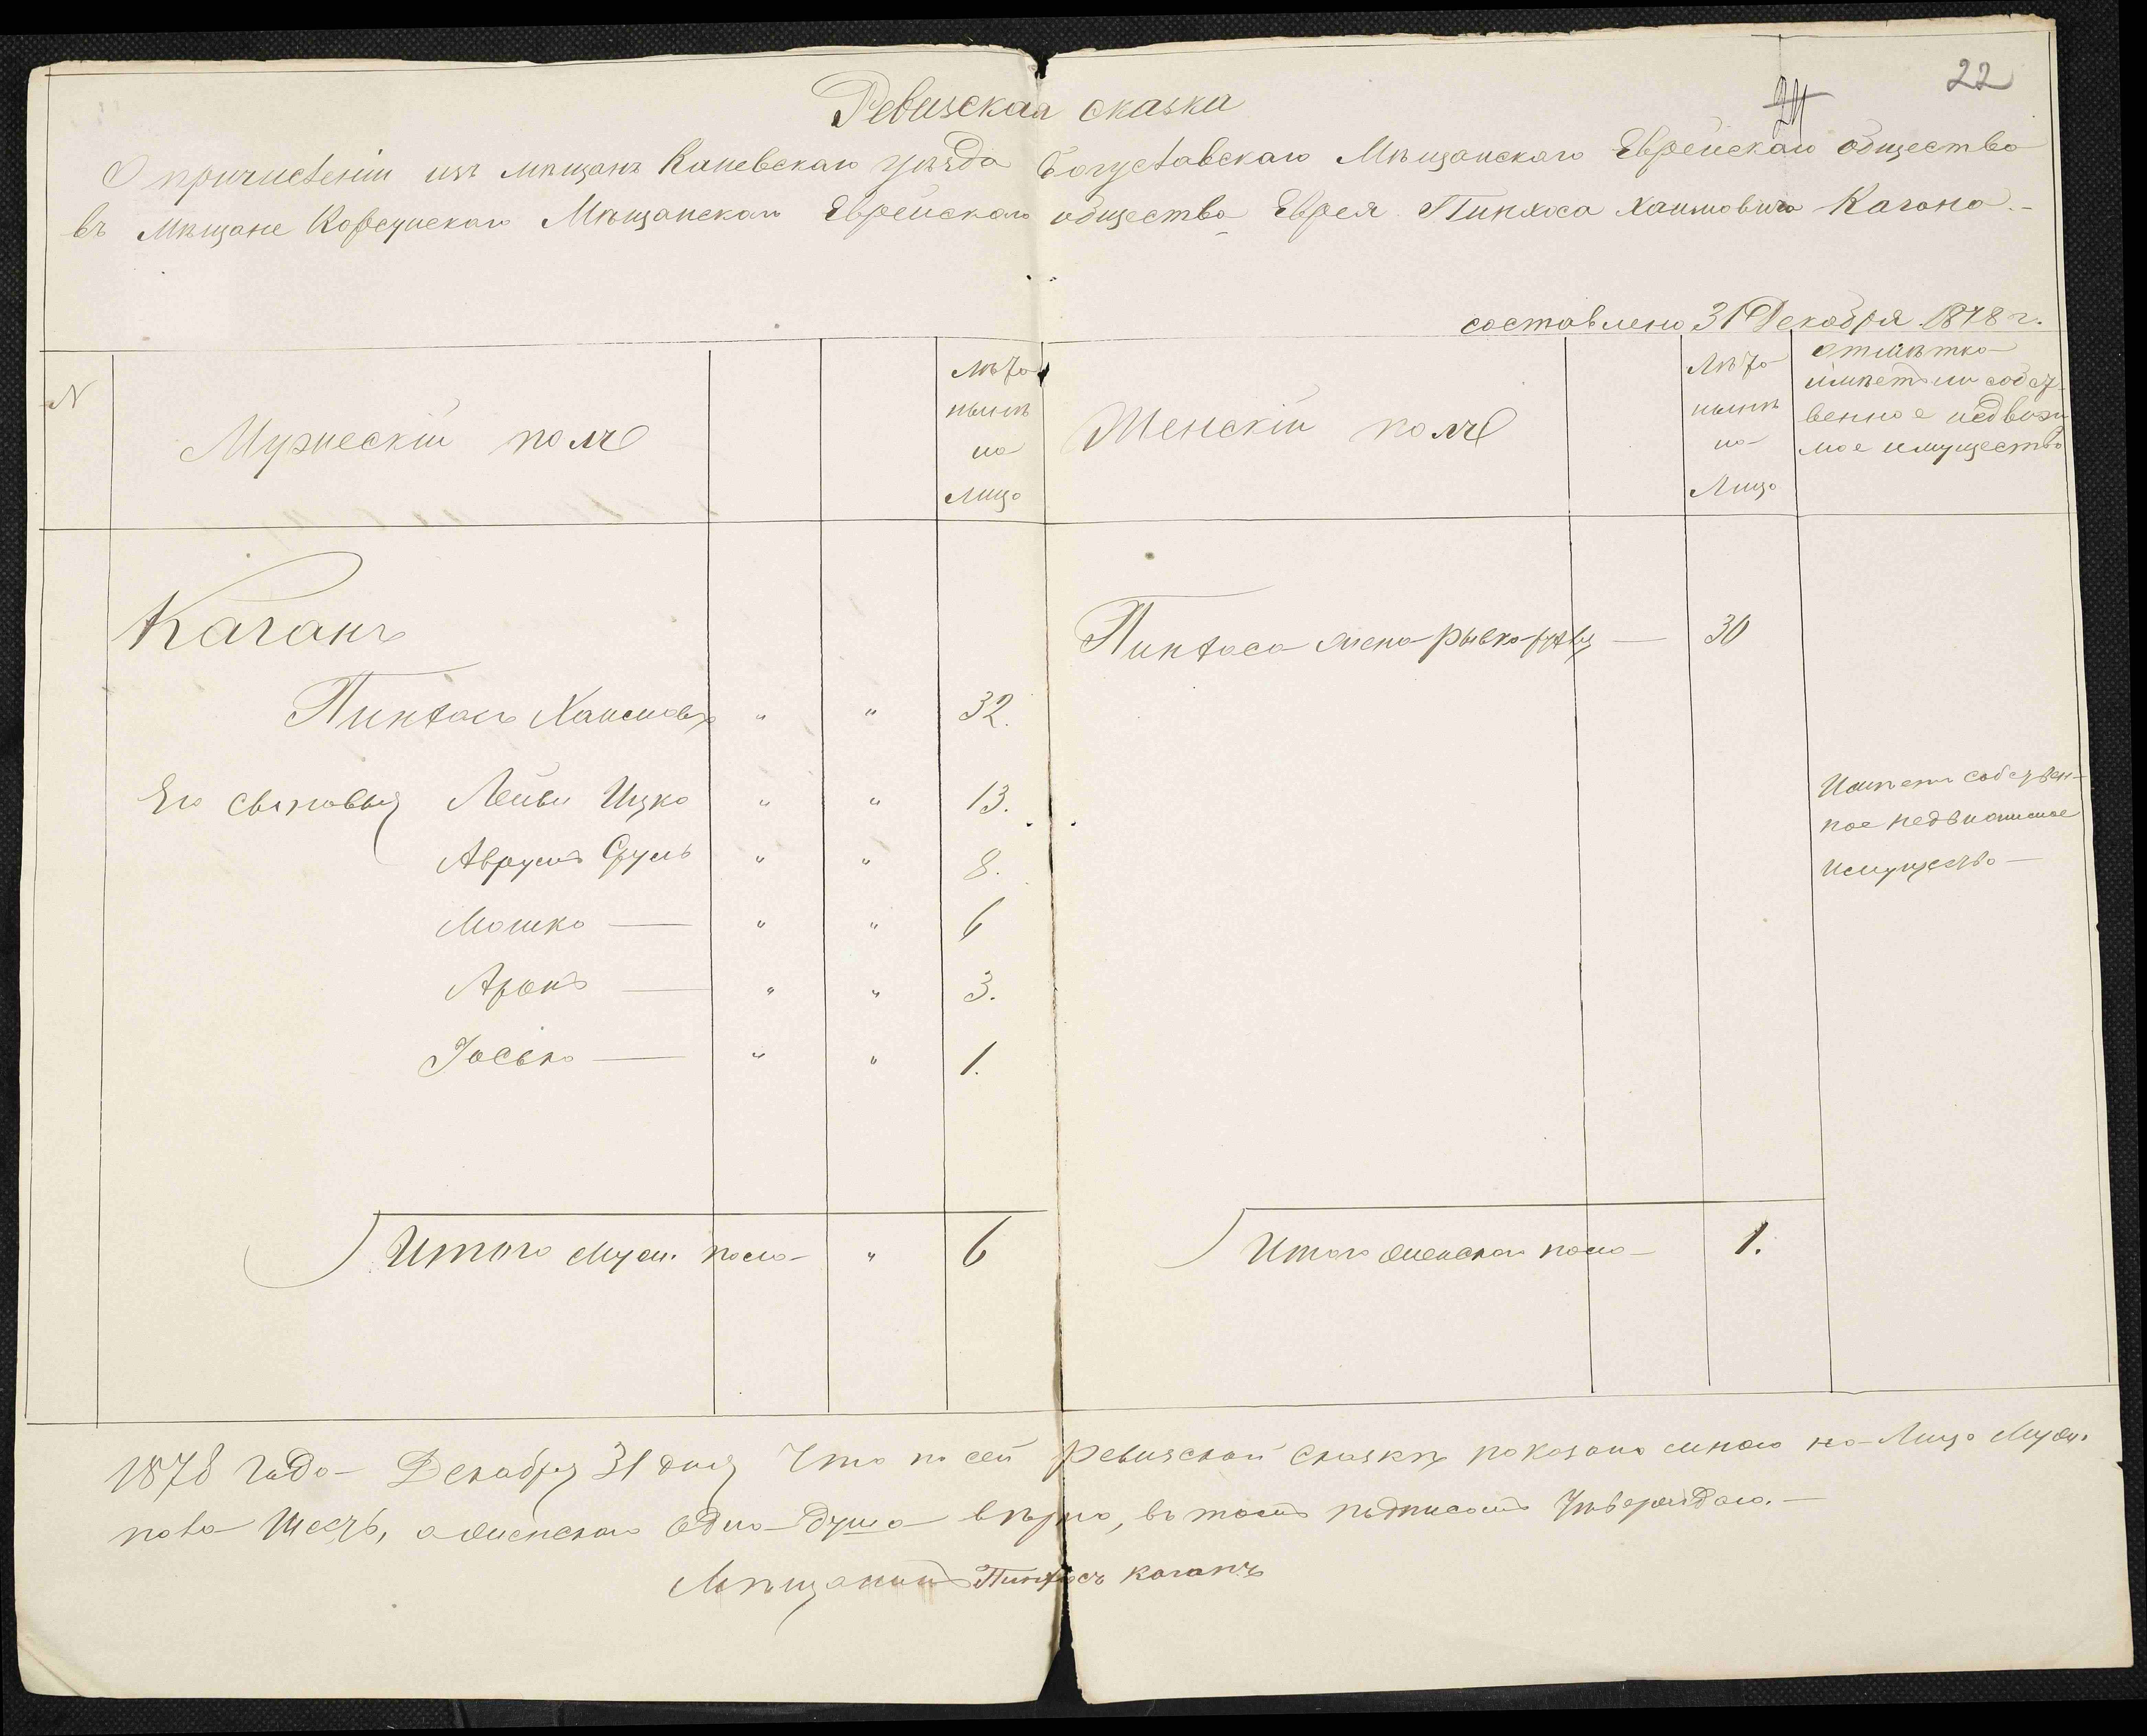 22
24
Ревизская сказка
О причислении изъ мѣщанъ Каневскаго уѣзда Богуславскаго Мѣщанскаго Еврейскаго общества
въ мѣщане Корсунскаго Мѣщанскаго Еврейскаго общества Еврея Пинхоса Хаимовича Кагана.-
составлена 31 Декабря 1878 г.
N
Мужескій полъ
Лѣта
нынѣ
на
лицо
Женскій полъ
Лѣта
нынѣ
на
Лицо
Отмѣтка
имѣетъ ли собст
венное недвижи
мое имущество
Каганъ
Пинхаса жена Рывка 30
Пинхасъ Хаимовъ " " 32.
Его сыновья Лейви Ицко " " 13.
Имѣетъ собствен-
ное недвижимое
имущество
Аврумъ Сруль " " 8.
Мошко " " 6
Аронъ " " 3.
Іосько " " 1.
Итого Муж. пола " 6
Итого женскаго пола 1.
1878 года Декабря 31 дня Что по сей ревизской сказкѣ показано мною на Лицо Муж.
пола Шесть, а женскаго одна душа вѣрно, въ томъ подписомъ Утверждаю.
Мѣщанинъ Пинхосъ Каганъ